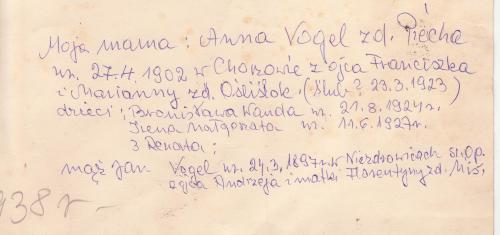 Moja mama: Anna Vogel zd. Piecha
ur. 27.4.1902 w Chorzowie z ojca Franciszka
i Marianny zd. Ośliślok. (ślub? 23.3.1923)
dzieci: Bronisława Wanda ur. 21.8.1924r.
Irena Małgorzata ur. 11.6.1927r.
3 Renata:
mąż Jan Vogel ur. 24.3.1897r. w Niezdrowicach
ojca Andrzeja i matki Florentyny zd. Miś.
938 r